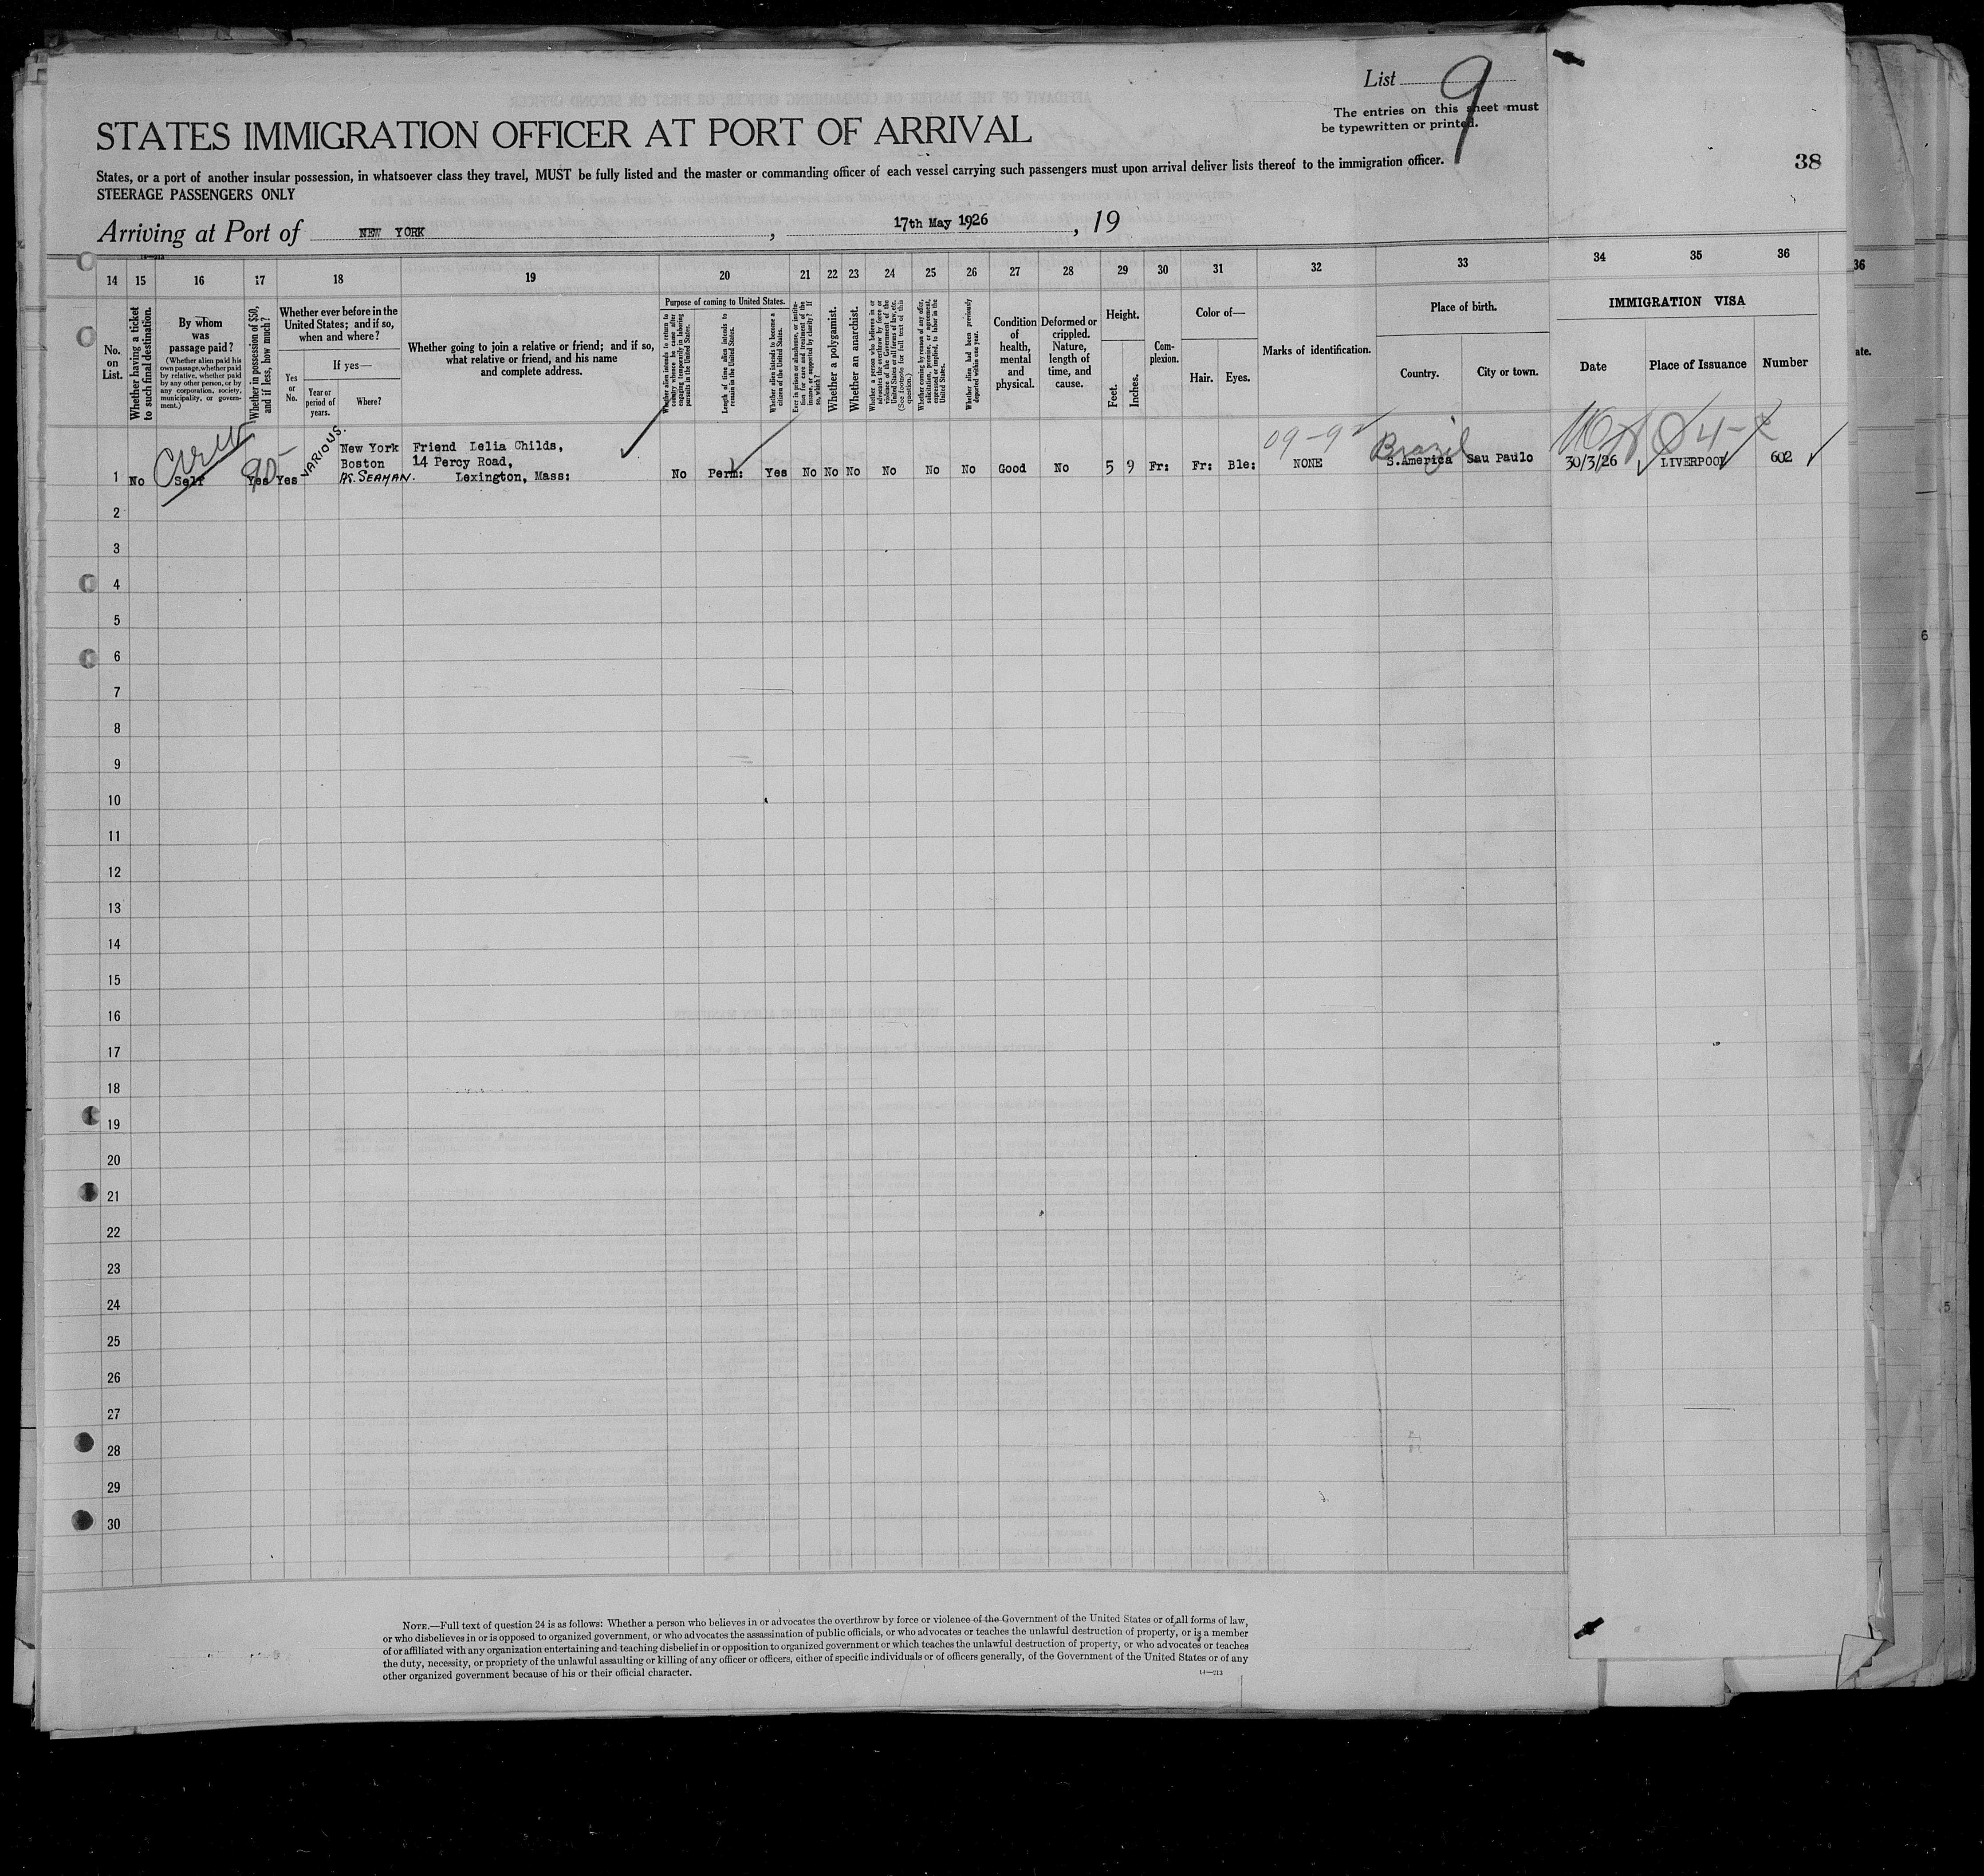 List 9
The entries on this sheet must
be typewritten or printed.
38
STATES IMMIGRATION OFFICER AT PORT OF ARRIVAL
States, or a port of another insular possession, in whatsoever class they travel, MUST be fully listed and the master or commanding officer of each vessel carrying such passengers must upon arrival deliver lists thereof to the immigration officer.
STEERAGE PASSENGERS ONLY
Arriving at Port of NEW YORK, 17th May 1926, 19
14 15 16 17 18 19 20 21 22 23 24 25 26 27 28 29 30 31 32 33 34 35 36
No.
on
List.
Whether having a ticket
to such final destination.
By whom
was
passage paid?
(Whether alien paid his
own passage, whether paid
by relative, whether paid
by any other person, or by
any corporation, society,
municipality, or govern-
ment.)
Whether in possession of $50,
and if less, how much?
Whether ever before in the
United States; and if so,
when and where?
Yes
or
No.
If yes—
Year or
period of
years.
Where?
Whether going to join a relative or friend; and if so,
what relative or friend, and his name
and complete address.
Purpose of coming to United States.
Whether alien intends to return to
country whence he came after
engaging temporarily in laboring
pursuits in the United States.
Length of time alien intends to
remain in the United States.
Whether alien intends to become a
citizen of the United States.
Ever in prison or almshouse, or institu-
tion for care and treatment of the
insane, or supported by charity? If
so, which?
Whether a polygamist.
Whether an anarchist.
Whether a person who believes in or
advocates the overthrow by force or
violence of the Government of the
United States or all forms of law, etc.
(See footnote for full text of this
question.)
Whether coming by reason of any offer,
solicitation, promise, or agreement,
expressed or implied, to labor in the
United States.
Whether alien had been previously
deported within one year.
Condition
of
health,
mental
and
physical.
Deformed or
crippled.
Nature,
length of
time, and
cause.
Height.
Feet.
Inches.
Com-
plexion.
Color of—
Hair.
Eyes.
Marks of identification.
Place of birth.
Country.
City or town.
IMMIGRATION VISA
Date
Place of Issuance
Number
36
ate.
09-92
Brazil
VARIOUS.
New York Friend Lelia Childs,
Boston 14 Percy Road,
AS. SEAMAN. Lexington, Mass:
1 No Self Yes Yes No Perm: Yes No No No No No No Good No 5 9 Fr: Fr: Ble: NONE S.America Sau Paulo 30/3/26 LIVERPOOL 602
2
3
4
5
6
7
8
9
10
11
12
13
14
15
16
17
18
19
20
21
22
23
24
25
26
27
28
29
30
6
5
NOTE.—Full text of question 24 is as follows: Whether a person who believes in or advocates the overthrow by force or violence of the Government of the United States or of all forms of law,
or who disbelieves in or is opposed to organized government, or who advocates the assassination of public officials, or who advocates or teaches the unlawful destruction of property, or is a member
of or affiliated with any organization entertaining and teaching disbelief in or opposition to organized government or which teaches the unlawful destruction of property, or who advocates or teaches
the duty, necessity, or propriety of the unlawful assaulting or killing of any officer or officers, either of specific individuals or of officers generally, of the Government of the United States or of any
other organized government because of his or their official character.
14—213